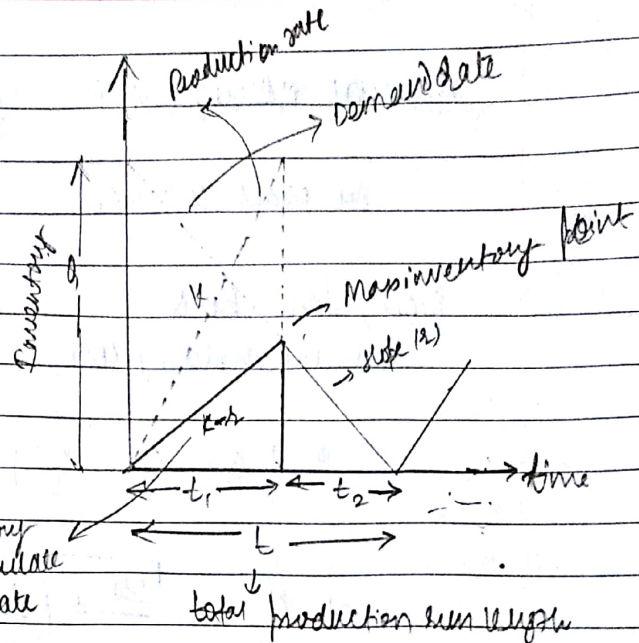 Production rate
Demand rate
Inventory
Q
K
Max inventory point
slope (r)
K-r
t₁
t₂
time
t
rate
total production run length